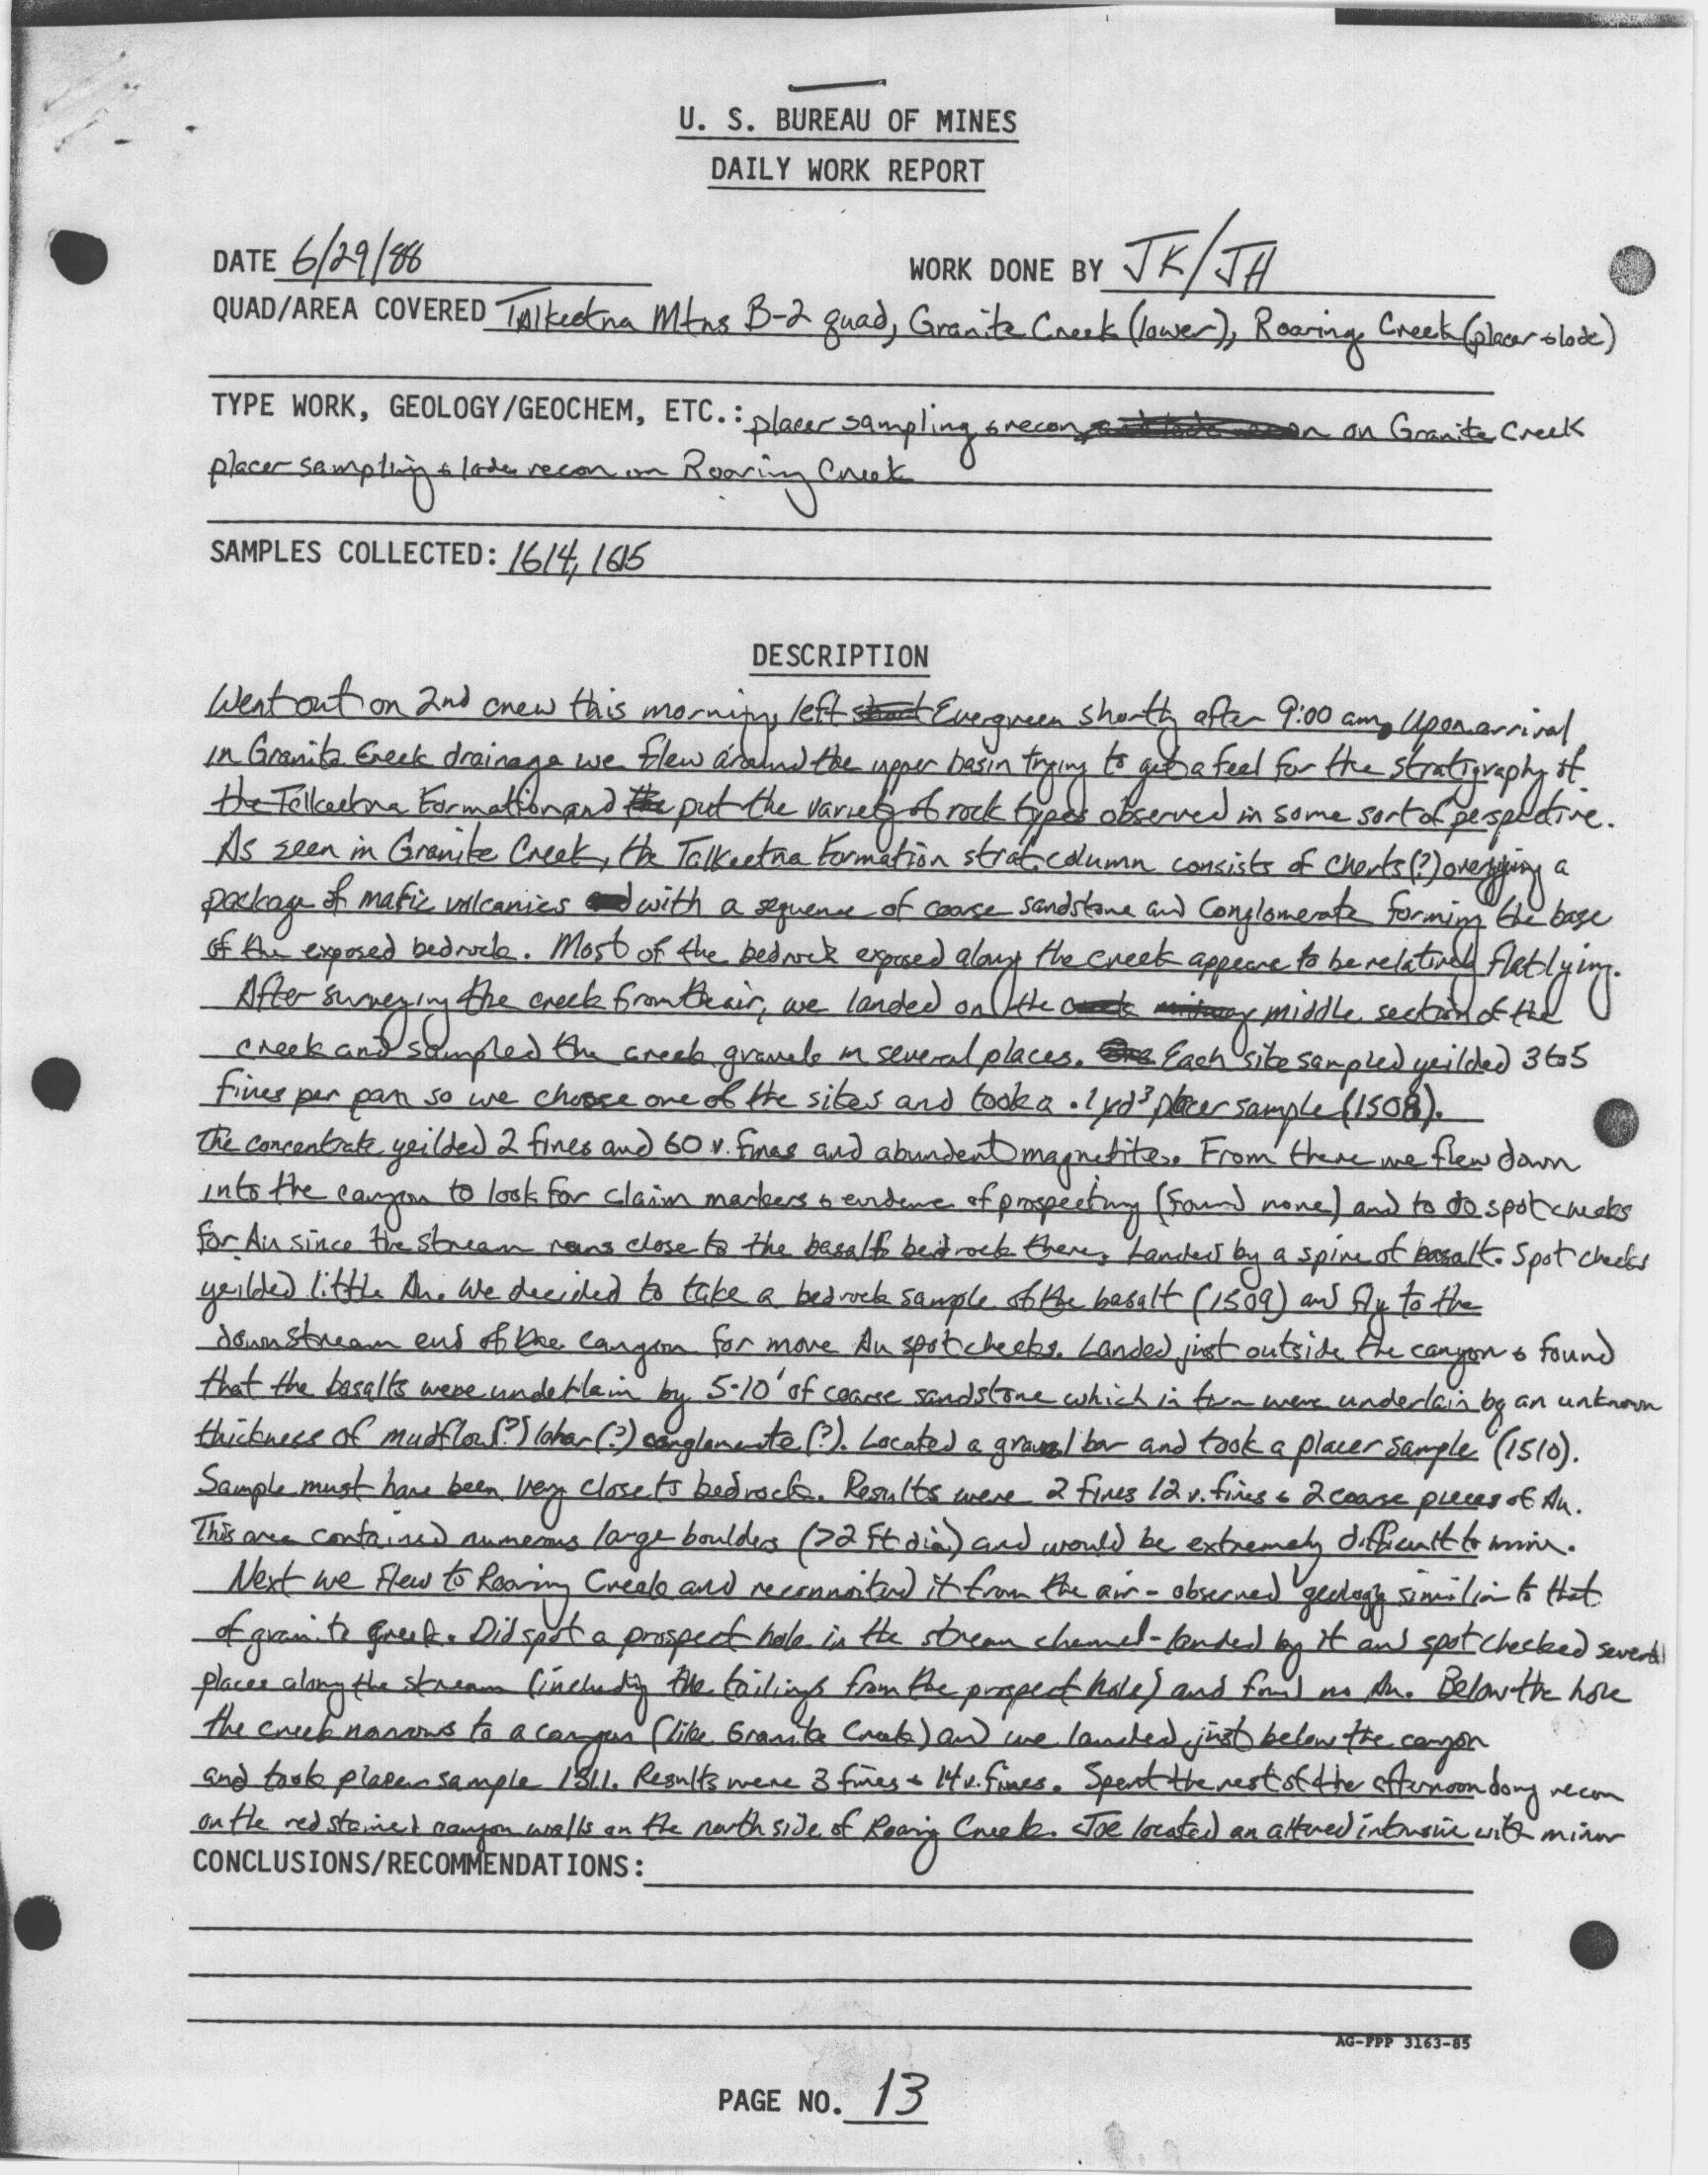 U. S. BUREAU OF MINES
DAILY WORK REPORT
DATE 6/29/88 WORK DONE BY JK/JH
QUAD/AREA COVERED Talkeetna Mtns B-2 quad, Granite Creek (lower), Roaring Creek (placer & lode)
TYPE WORK, GEOLOGY/GEOCHEM, ETC.: placer sampling & recon on Granite Creek
placer sampling & lode recon on Roaring Creek
SAMPLES COLLECTED: 1614, 1615
DESCRIPTION
Went out on 2nd crew this morning, left Evergreen shortly after 9:00 am, Upon arrival
in Granite Creek drainage we flew around the upper basin trying to get a feel for the stratigraphy of
the Talkeetna Formation and put the variety of rock types observed in some sort of perspective.
As seen in Granite Creek, the Talkeetna Formation strat. column consists of cherts(?) overlying a
package of mafic volcanics with a sequence of coarse sandstone and conglomerate forming the base
of the exposed bedrock. Most of the bedrock exposed along the creek appears to be relatively flat lying.
After surveying the creek from the air, we landed on the middle section of the
creek and sampled the creek gravels in several places. Each site sampled yeilded 3 to 5
fines per pan so we choose one of the sites and took a .1 yd³ placer sample (1508).
The concentrate yeilded 2 fines and 60 v. fines and abundent magnetite. From there we flew down
into the canyon to look for claim markers & evidence of prospecting (found none) and to do spot checks
for Au since the stream runs close to the basalt bedrock there, Landed by a spine of basalt. Spot checks
yeilded little Au. We decided to take a bedrock sample of the basalt (1509) and fly to the
downstream end of the canyon for more Au spot checks. Landed just outside the canyon & found
that the basalts were underlain by 5-10' of coarse sandstone which in turn were underlain by an unknown
thickness of mudflow(?) lahar(?) conglomerate(?). Located a gravel bar and took a placer sample (1510).
Sample must have been very close to bedrock. Results were 2 fines 12 v. fines & 2 coarse pieces of Au.
This area contained numerous large boulders (>2 ft dia) and would be extremely difficult to mine.
Next we flew to Roaring Creek and reconnoitered it from the air - observed geology similiar to that
of granite creek. Did spot a prospect hole in the stream channel - landed by it and spot checked several
places along the stream (including the tailings from the prospect hole) and found no Au. Below the hole
the creek narrows to a canyon (like Granite Creek) and we landed just below the canyon
and took placer sample 1511. Results were 3 fines & 14 v. fines. Spent the rest of the afternoon doing recon
on the red stained canyon walls on the north side of Roaring Creek. Joe located an altered intrusive with minor
CONCLUSIONS/RECOMMENDATIONS:
AG-FPP 3163-85
PAGE NO. 13